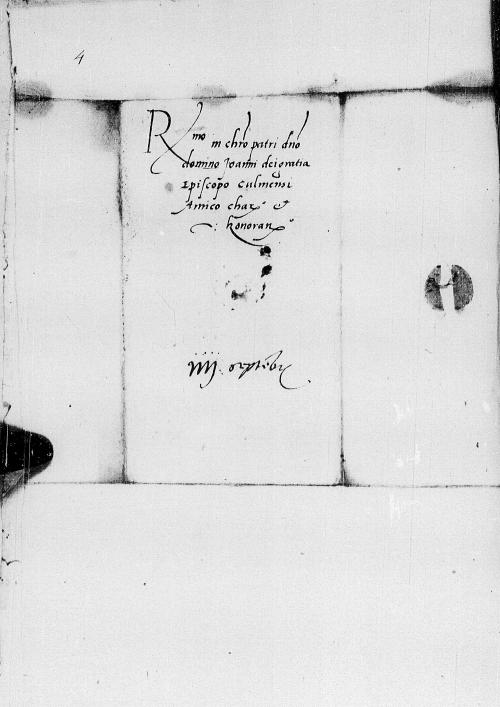 4
R mo in chro patri dno
domino Joanni dei gratia
Episcopo culmensi
Amico charo et
honoran
iiij septebr